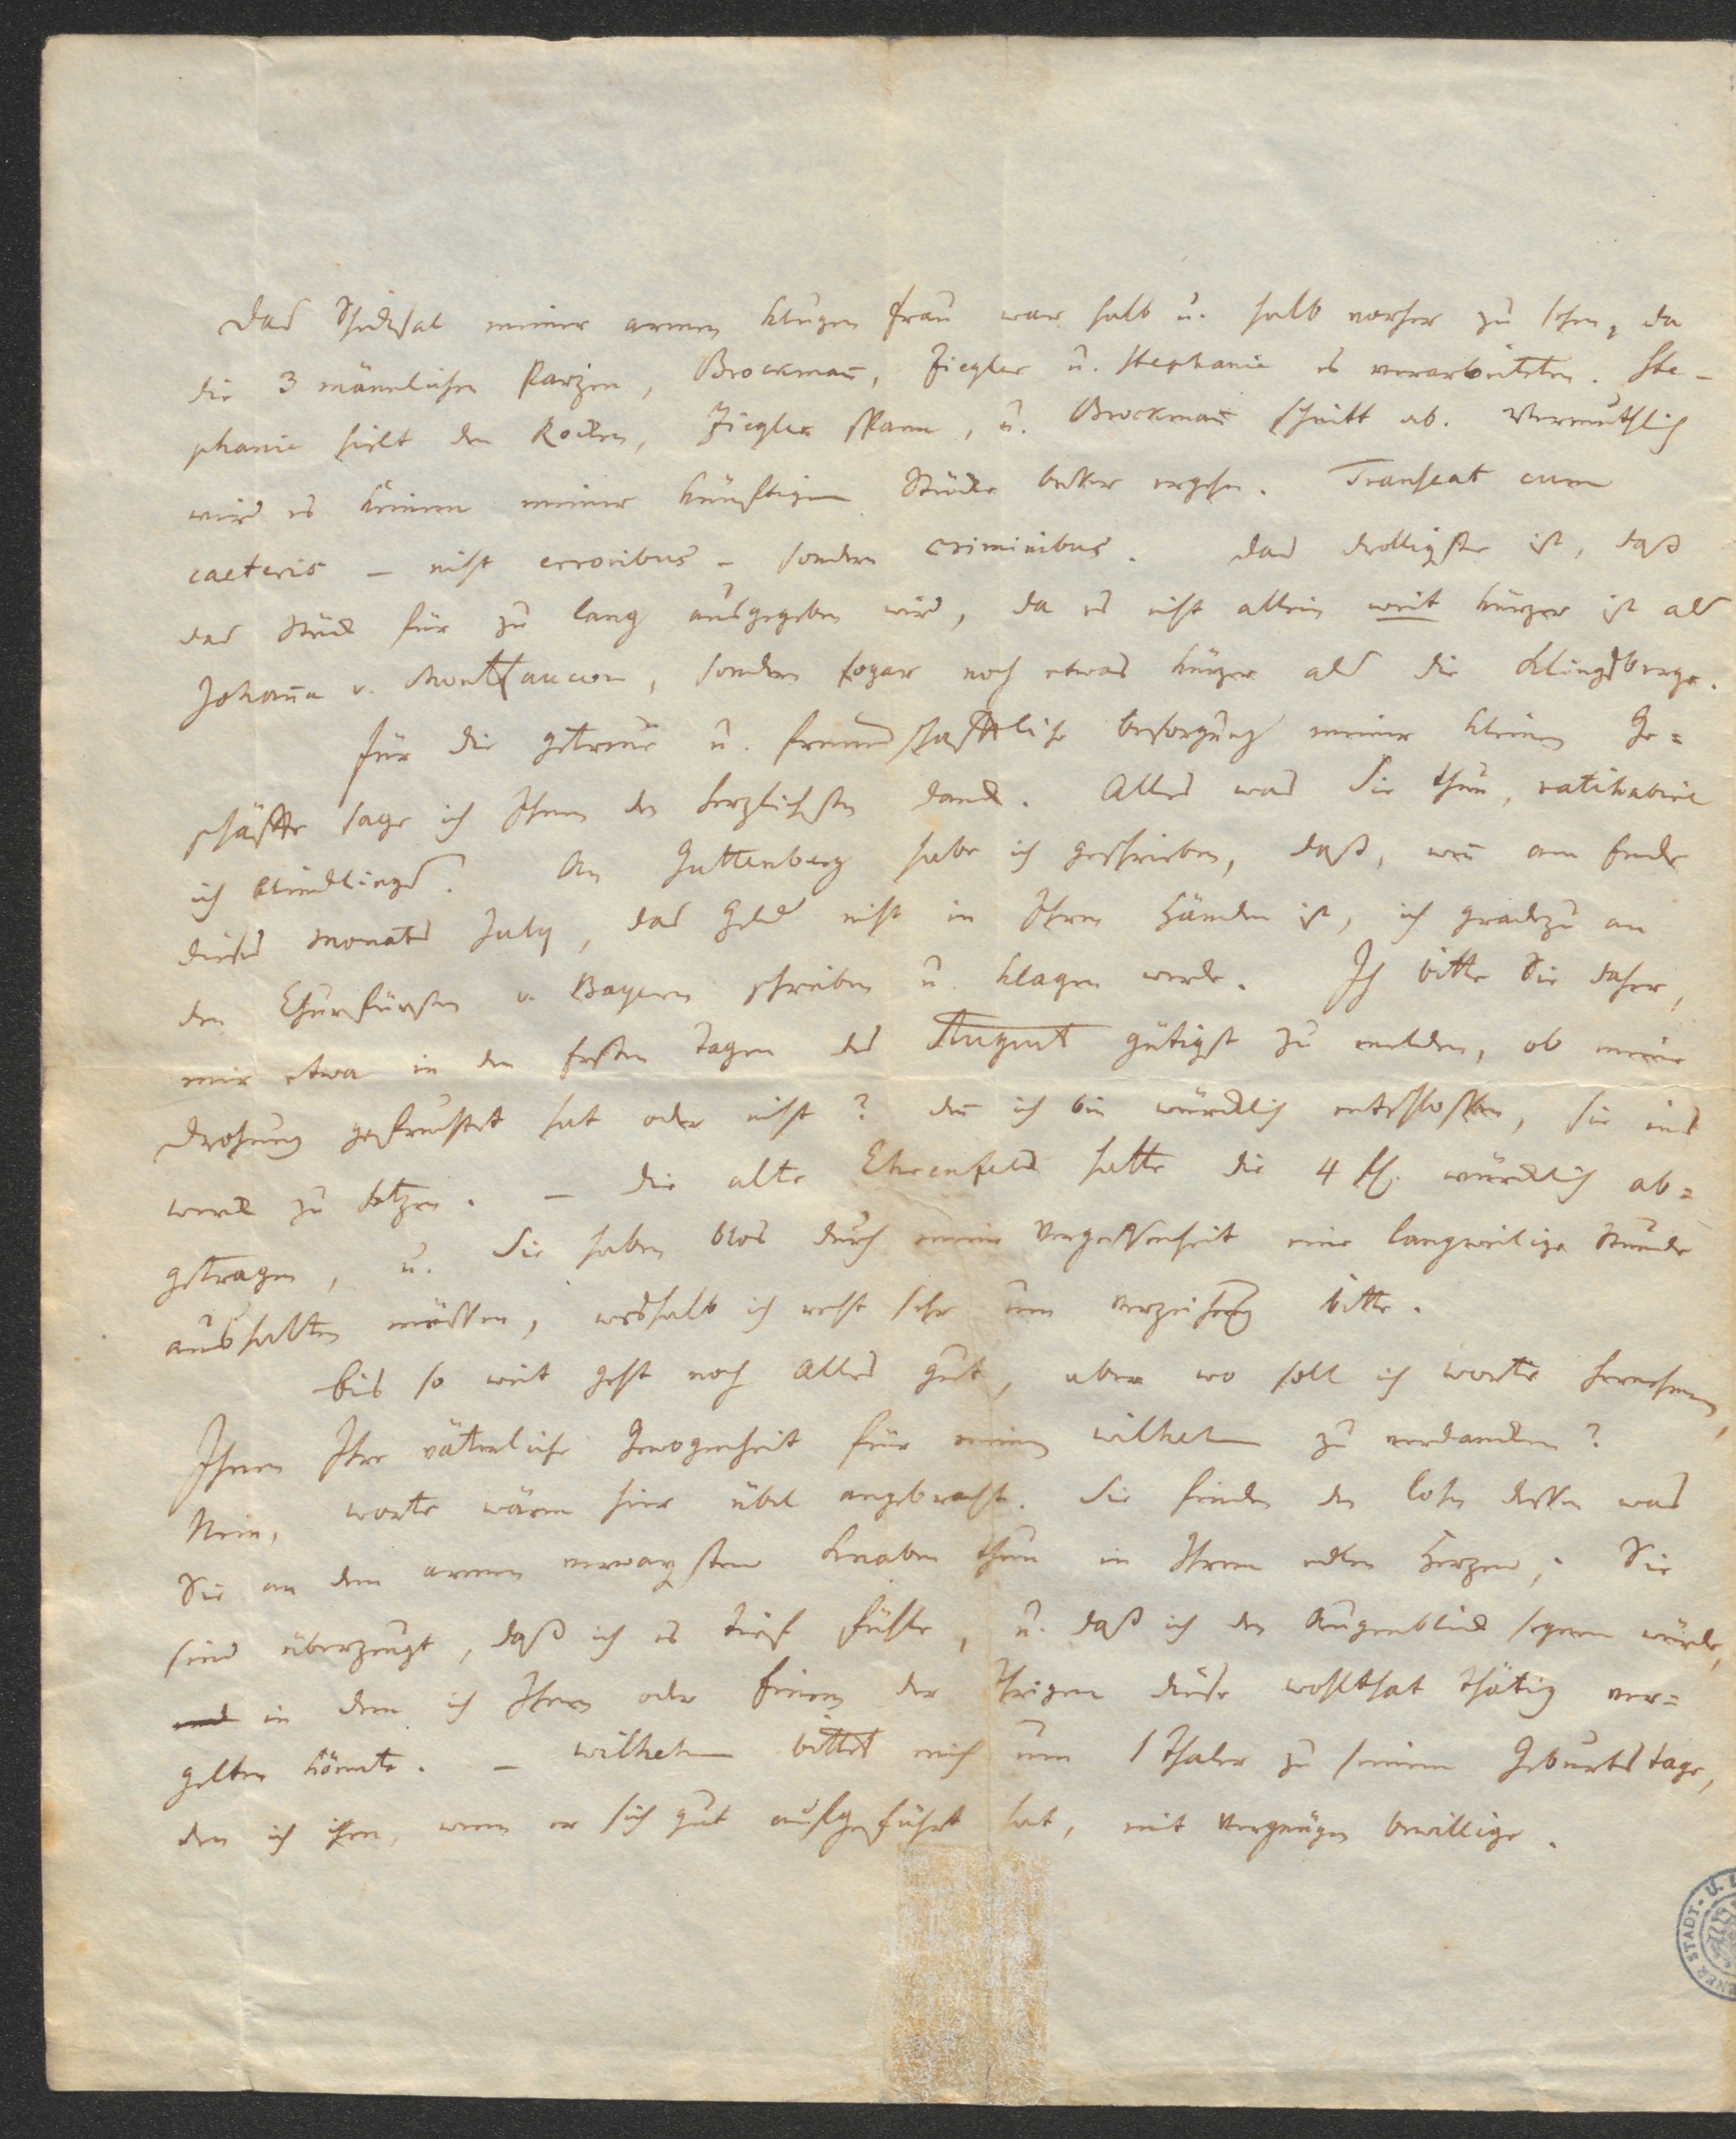 Das Schicksal meiner armen klugen Frau war halb u. halb vorher zu sehn, da
die 3 männlichen Parzen, Brockmañ, Ziegler u. Stephanie es verarbeiteten. Ste-
phanie hielt den Rocken, Ziegler spann, u. Brockmañ schnitt ab. Vermuthlich
wird es keinem meiner künftigen Stücke besser ergehn. Transeat cum
caeteris – nicht erroribus – sondern criminibus. Das drolligste ist, daß
das Stück für zu lang ausgegeben wird, da es nicht allein weit kürzer ist als
Johaña v. Montfaucon, sondern sogar noch etwas kürzer als die Klingsberge.
Für die getreue u. freundschaftliche Besorgung meiner kleinen Ge=
schäffte sage ich Ihnen den herzlichsten Dank. Alles was Sie thun, ratihabire
ich blindlings. An Guttenberg habe ich geschrieben, daß, weñ am Ende
dieses Monats July, das Geld nicht in Ihren Händen ist, ich gradezu an
den Churfürsten v. Bayern schreiben u. klagen werde. Ich bitte Sie daher,
mir etwa in den ersten Tagen des August gütigst zu melden, ob meine
Drohung gefruchtet hat oder nicht? deñ ich bin würcklich entschlossen, sie ins
Werk zu setzen. – Die alte Ehrenfeld hatte die 4 fl. würcklich ab=
getragen, u. Sie haben blos durch meine Vergessenheit eine langweilige Stunde
aushalten müssen, weshalb ich recht sehr um Verzeihung bitte.
Bis so weit geht noch Alles gut, aber wo soll ich Worte hernehmen,
Ihnen Ihre väterliche Gewogenheit für meinen Wilhelm zu verdanken?
Nein, Worte wären hier übel angebracht. Sie finden den Lohn dessen was
Sie an dem armen verwaysten Knaben thun in Ihrem edlen Herzen; Sie
sind überzeugt, daß ich es tief fühle, u. daß ich den Augenblick segnen würde,
und in dem ich Ihnen oder Einem der Ihrigen diese Wohlthat thätig ver=
gelten könnte. – Wilhelm bittet mich um 1 Thaler zu seinem Geburtstage,
den ich ihm, wenn er sich gut aufgeführt hat, mit Vergnügen bewillige.